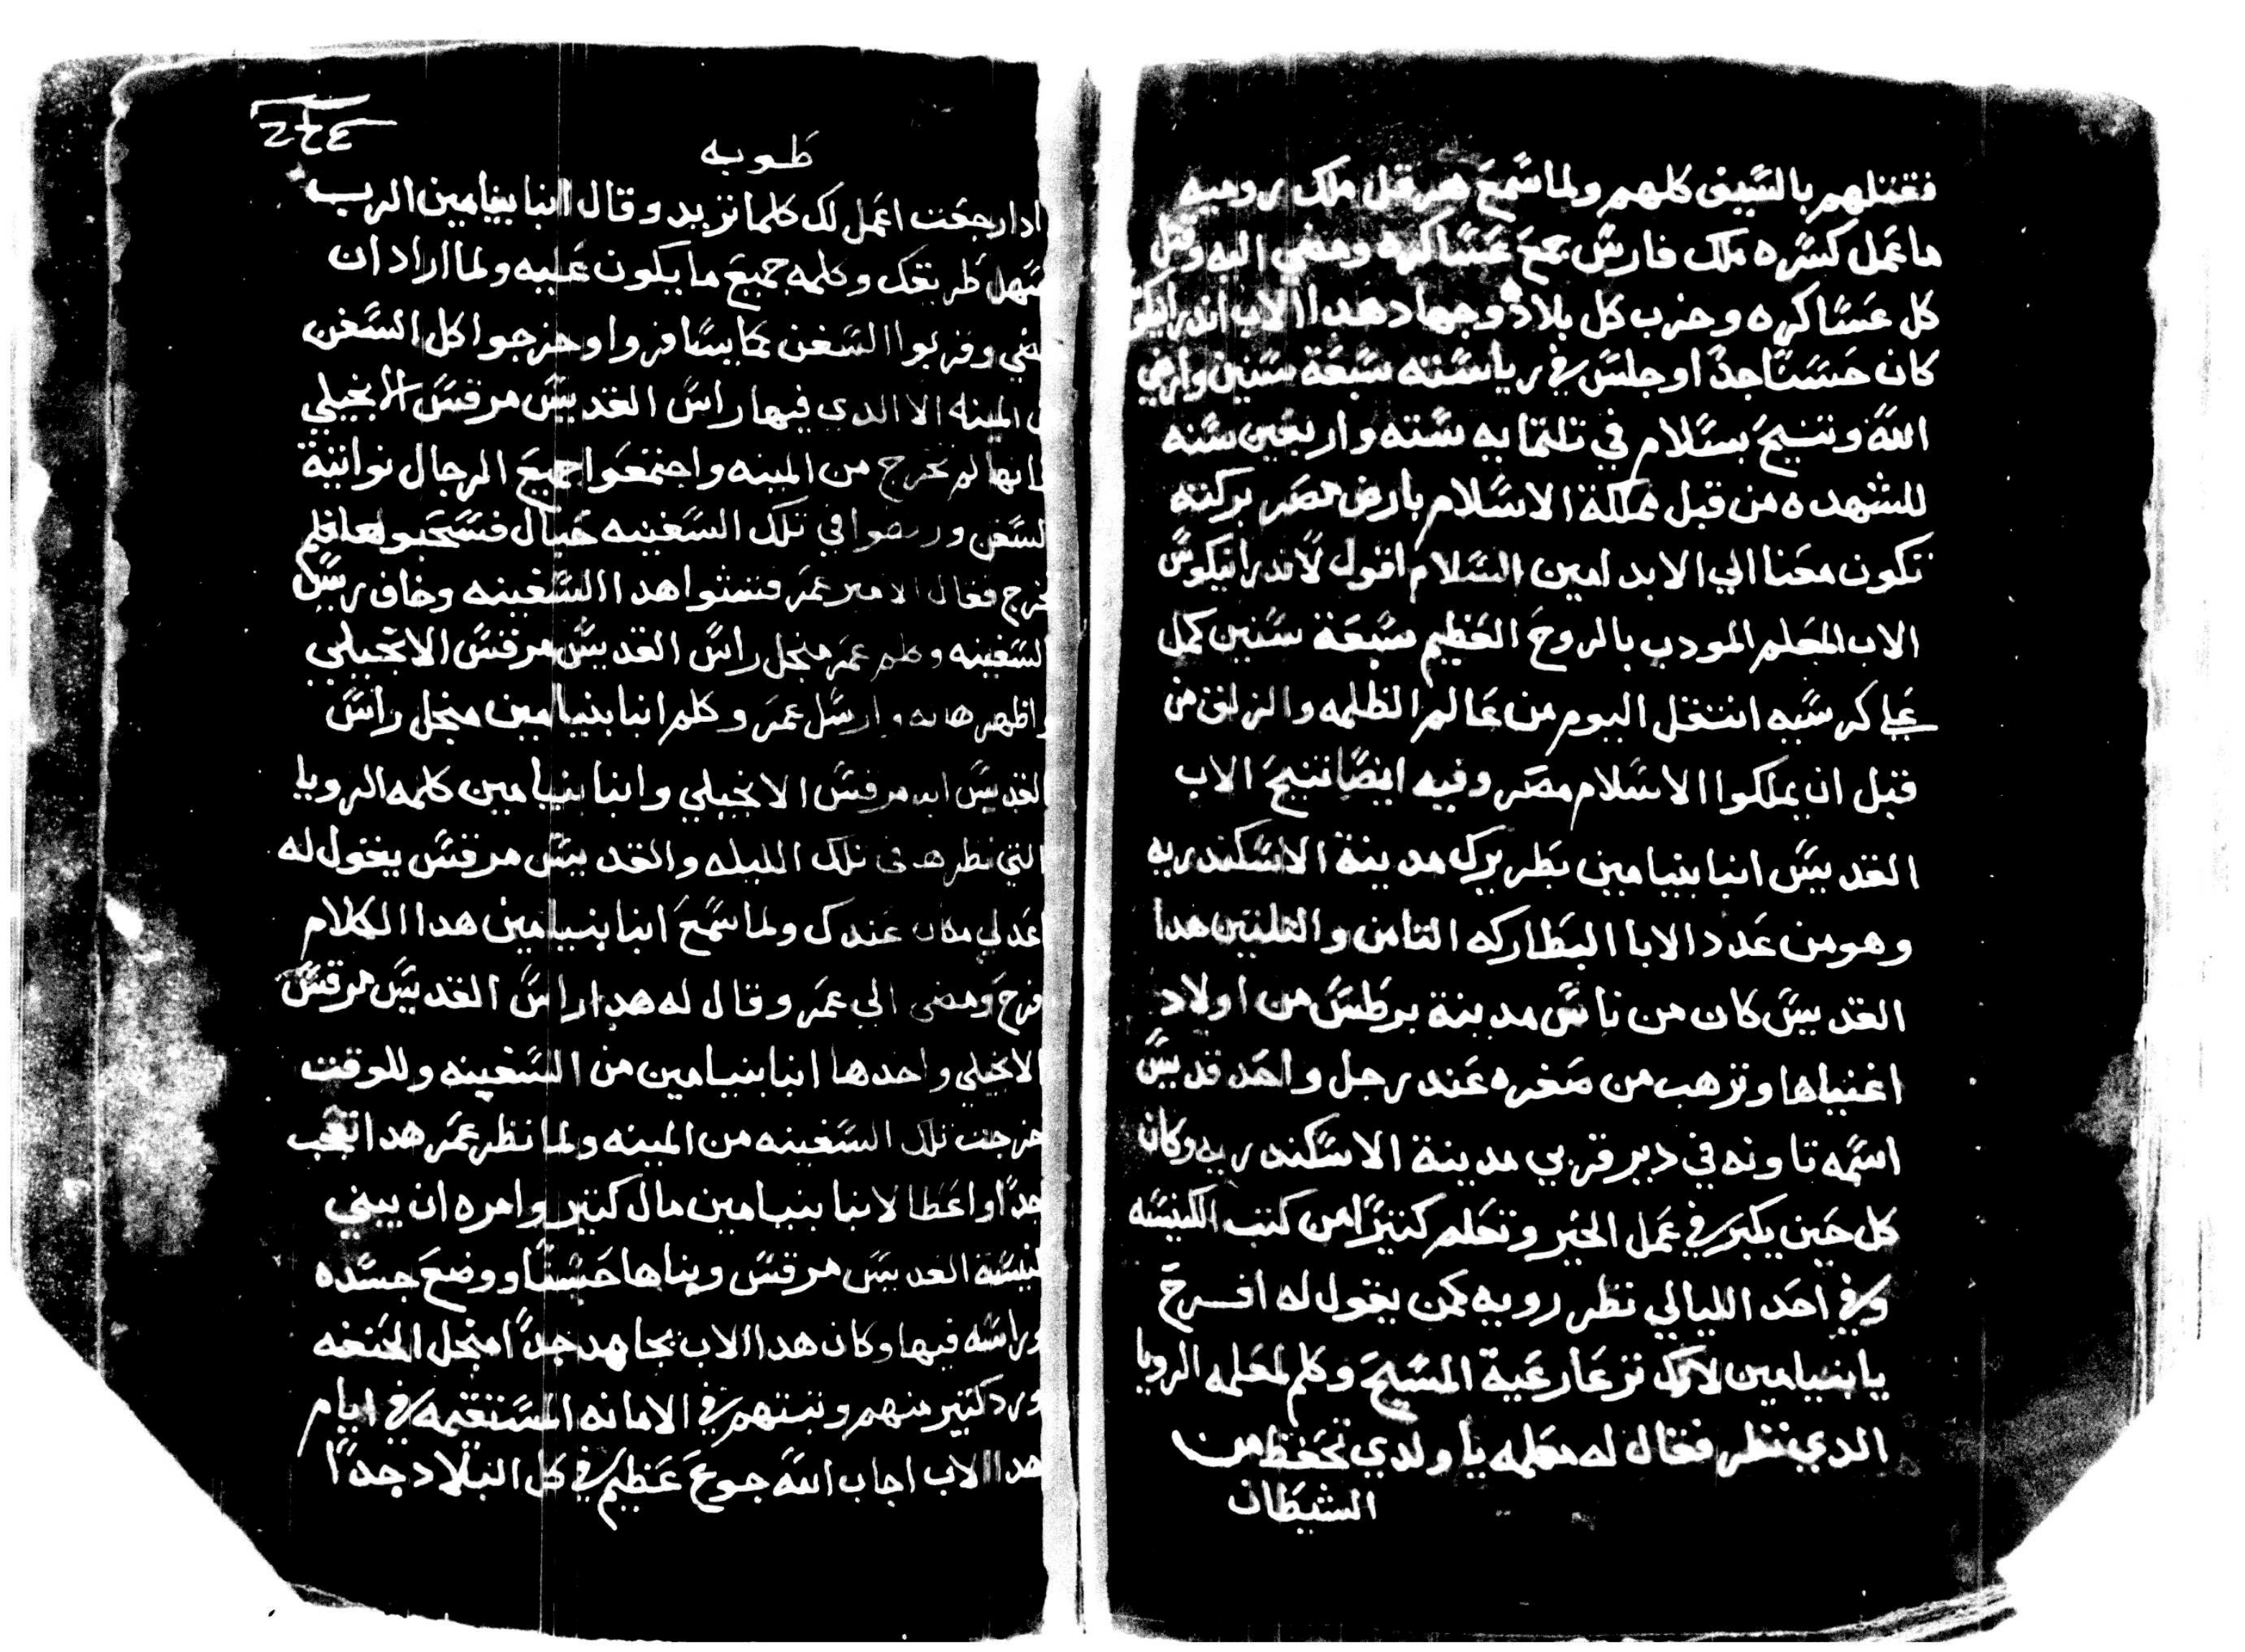 فقتلهم بالسيف كلهم ولما سمع هرقل ملك روميه
ما عمل كسره ملك فارس جمع عساكره ومضي اليه وقتل
كل عساكره وخرب كل بلاده وجهاد هدا الاب اندرانيكو
كان حسنا جدا وجلس في رياسته سبعة سنين وارضي
الله وتنيح بسلام في تلتمايه سته واربعين سنه
للشهده من قبل مملكة الاسلام بارض مصر بركته
تكون معنا الي الابد امين السلام اقول لاندرانيكوس
الاب المعلم المودب بالروح العظيم سبعة سنين كمل
علي كرسيه انتقل اليوم من عالم الظلمه والزلق من
قبل ان يملكوا الاسلام مصر وفيه ايضا تنيح الاب
القديس انبا بنيامين بطريرك مدينة الاسكندريه
وهو من عدد الابا البطاركه التامن والتلتين هدا
القديس كان من ناس مدينة برطس من اولاد
اغنياها وترهب من صغره عند رجل واحد قديس
اسمه تاونه في دير قربي مدينة الاسكندريه وكان
كل حين يكبر في عمل الخير وتعلم كتيرا من كتب الكنيسه
وفي احد الليالي نظر رويه كمن يقول له افرح
يا بنيامين لانك ترعا رعية المسيح وكلم لمعلمه الرويا
الدي نظر فقال له معلمه يا ولدي تحفظ من
الشيطان
طوبه
ادا رجعت اعمل لك كلما تريد وقال انبا بنيامين الرب
يسهل طريقك وكلمه جميع ما يكون عليه ولما اراد ان
يمضي وقربوا السفن كما يسافروا وخرجوا كل السفن
من المينه الا الدي فيها راس القديس مرقس الانجيلي
فانها لم تخرج من المينه واجتمعوا جميع الرجال نواتية
السفن وربطوا في تلك السفينه حبال فسحبوها فلم
تخرج فقال الامير عمر فتشوا هدا السفينه وخاف ريس
السفينه وكلم عمر منجل راس القديس مرقس الانجيلي
واظهرها له وارسل عمر وكلم انبا بنيامين منجل راس
القديس مرقس الانجيلي وانبا بنيامين كلمه الرويا
التي نظرها في تلك الليله والقديس مرقس يقول له
اعد لي مكان عندك ولما سمع انبا بنيامين هدا الكلام
فرح ومضي الي عمر وقال له هدا راس القديس مرقس
الانجيلي واخدها انبا بنيامين من السفينه وللوقت
خرجت تلك السفينه من المينه ولما نظر عمر هدا تعجب
جدا واعطا لانبا بنيامين مال كتير وامره ان يبني
كنيسة القديس مرقس وبناها حسنا ووضع جسده
وراسه فيها وكان هدا الاب يجاهد جدا منجل الحنفه
ورد كتير منهم وتبتهم في الامانه المستقيمه في ايام
هدا الاب اجاب الله جوع عظيم في كل البلاد جدا